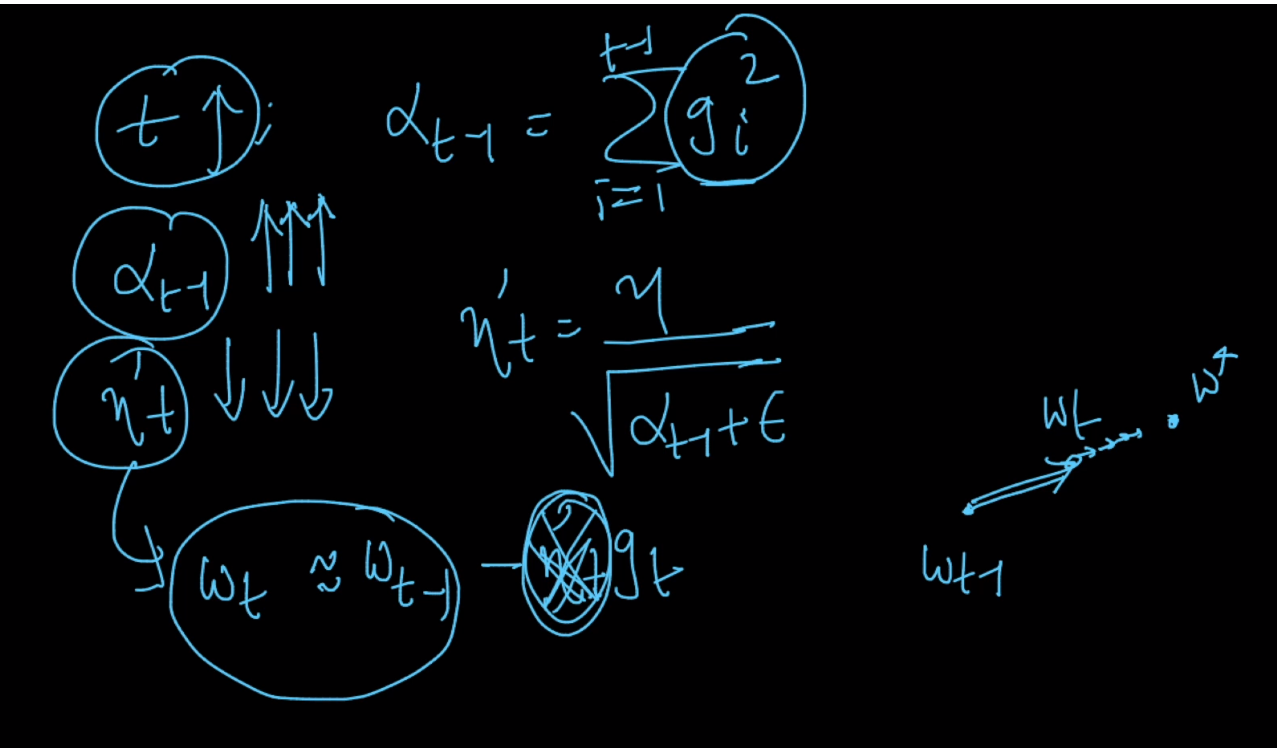 t ↑ ;
α_{t-1} = ∑_{i=1}^{t-1} g_i^2
α_{t-1} ↑↑↑
η'_t ↓↓↓
η'_t = η / √(α_{t-1} + ε)
w_t ≈ w_{t-1} - η'_t g_t
w_{t-1}
w_t
w*